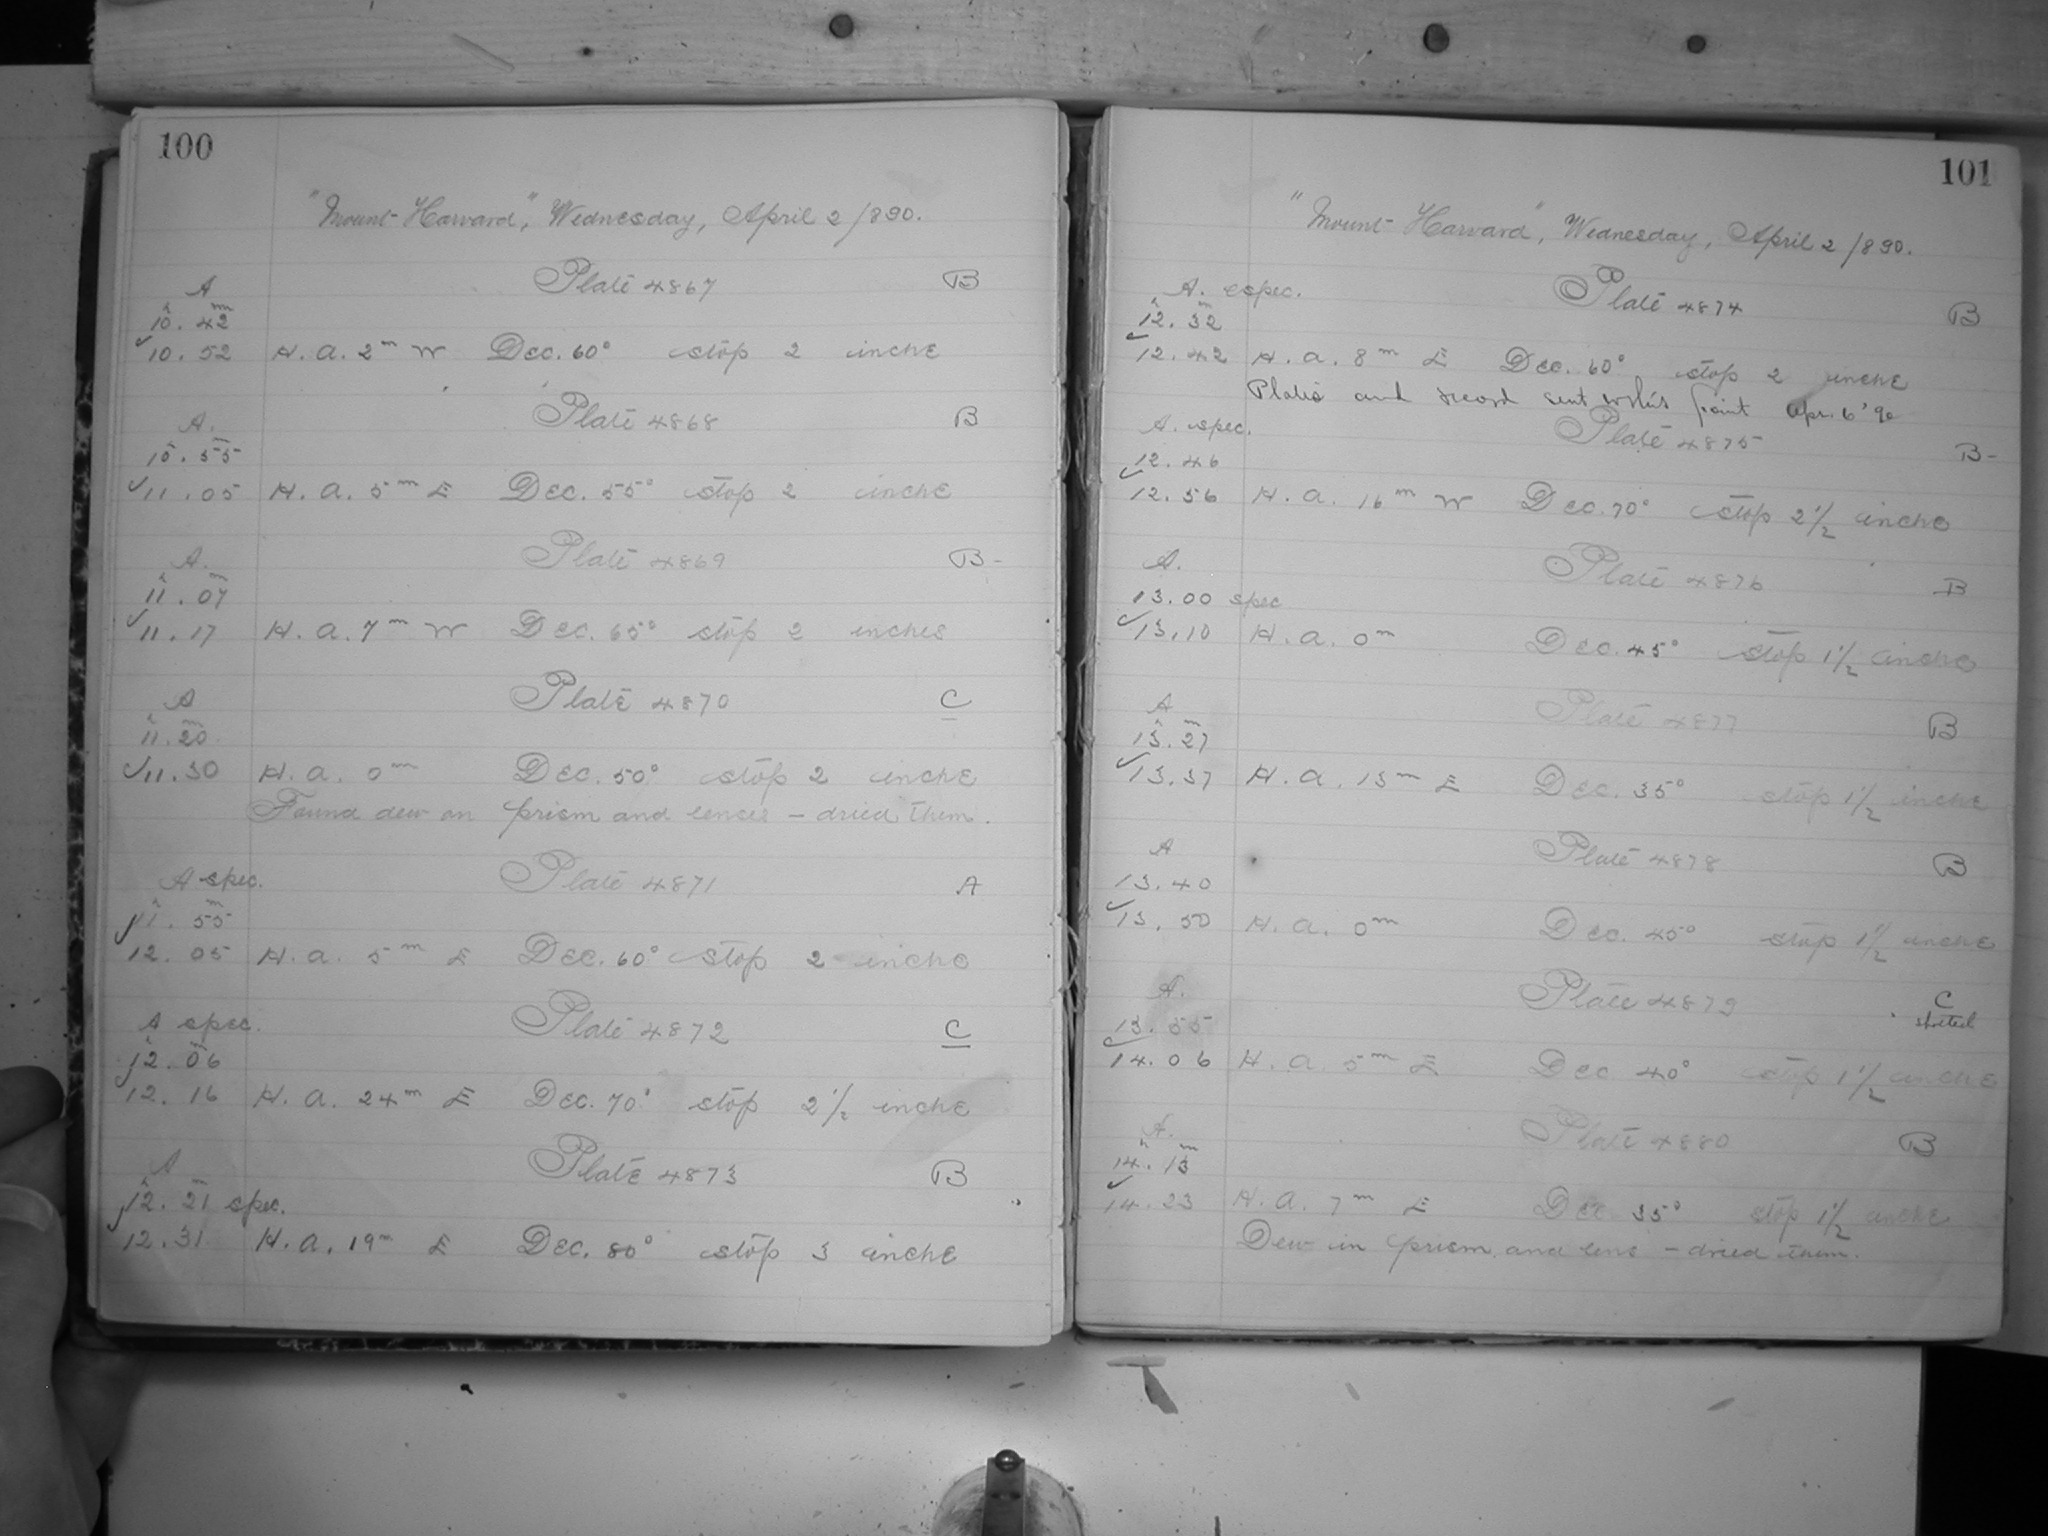 100
"Mount Harvard," Wednesday, April 2/890.
A Plate 4867 B
10h. 42m
✓10. 52 H. a. 2m W Dec. 60° stop 2 inche
A. Plate 4868 B
10h. 55m
✓11. 05 H. a. 5m E Dec. 55° stop 2 inche
A. Plate 4869 B-
11h. 07m
✓11. 17 H. a. 7m W Dec. 65° stop 2 inches
A Plate 4870 C
11h. 20m
✓11. 30 H. a. 0m Dec. 50° stop 2 inche
Found dew on prism and lenses – dried them.
A spec. Plate 4871 A
✓11h. 55m
12. 05 H. a. 5m E Dec. 60° stop 2 inche
A spec. Plate 4872 C
✓12h. 06m
12. 16 H. a. 24m E Dec. 70° stop 2 1/2 inche
A Plate 4873 B
✓12h. 21m spec.
12. 31 H. a. 19m E Dec. 80° stop 3 inche
101
"Mount Harvard", Wednesday, April 2/890.
A. spec. Plate 4874 B
12h. 32m
✓12. 42 H. a. 8m E Dec. 60° stop 2 inche
Plates and record sent to this point Apr. 6 '90
A. spec. Plate 4875 B-
12. 46
✓12. 56 H. a. 16m W Dec. 70° stop 2 1/2 inche
A. Plate 4876 B
13. 00 spec
✓13. 10 H. a. 0m Dec. 45° stop 1 1/2 inche
A Plate 4877 B
13h. 27m
✓13. 37 H. a. 13m E Dec. 35° stop 1 1/2 inche
A Plate 4878 B
13. 40
✓13. 50 H. a. 0m Dec. 45° stop 1 1/2 inche
A. Plate 4879 C
13. 55
✓14. 06 H. a. 5m E Dec 40° stop 1 1/2 inche
A. Plate 4880 B
14h. 13m
✓14. 23 H. a. 7m E Dec. 35° stop 1 1/2 inche
Dew in prism and lens – dried them.